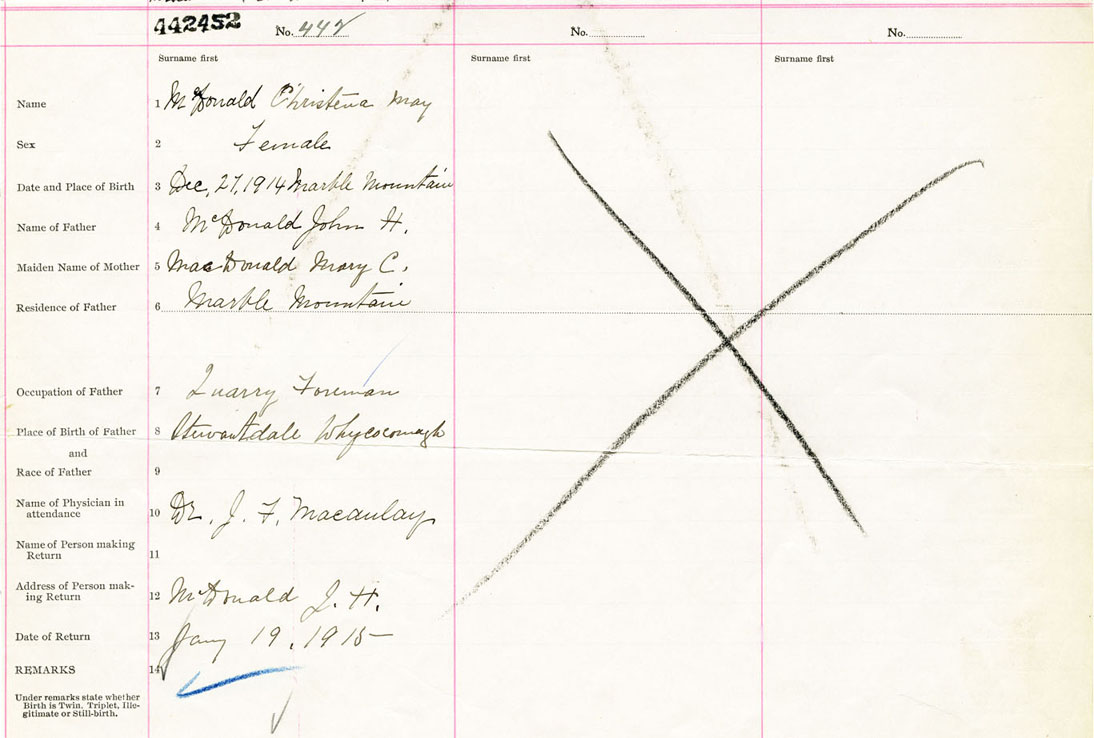 442452 No. 442 No. No.
Surname first Surname first Surname first
Name 1 McDonald Christena May
Sex 2 Female
Date and Place of Birth 3 Dec, 27, 1914 Marble Mountain
Name of Father 4 McDonald John H.
Maiden Name of Mother 5 MacDonald Mary C.
Residence of Father 6 Marble Mountain
Occupation of Father 7 Quarry Foreman
Place of Birth of Father 8 Stewartdale Whycocomagh
and
Race of Father 9
Name of Physician in
attendance 10 Dr. J. F. Macaulay
Name of Person making
Return 11
Address of Person mak-
ing Return 12 McDonald J. H.
Date of Return 13 Jany 19, 1915
REMARKS 14
Under remarks state whether
Birth is Twin, Triplet, Ille-
gitimate or Still-birth.